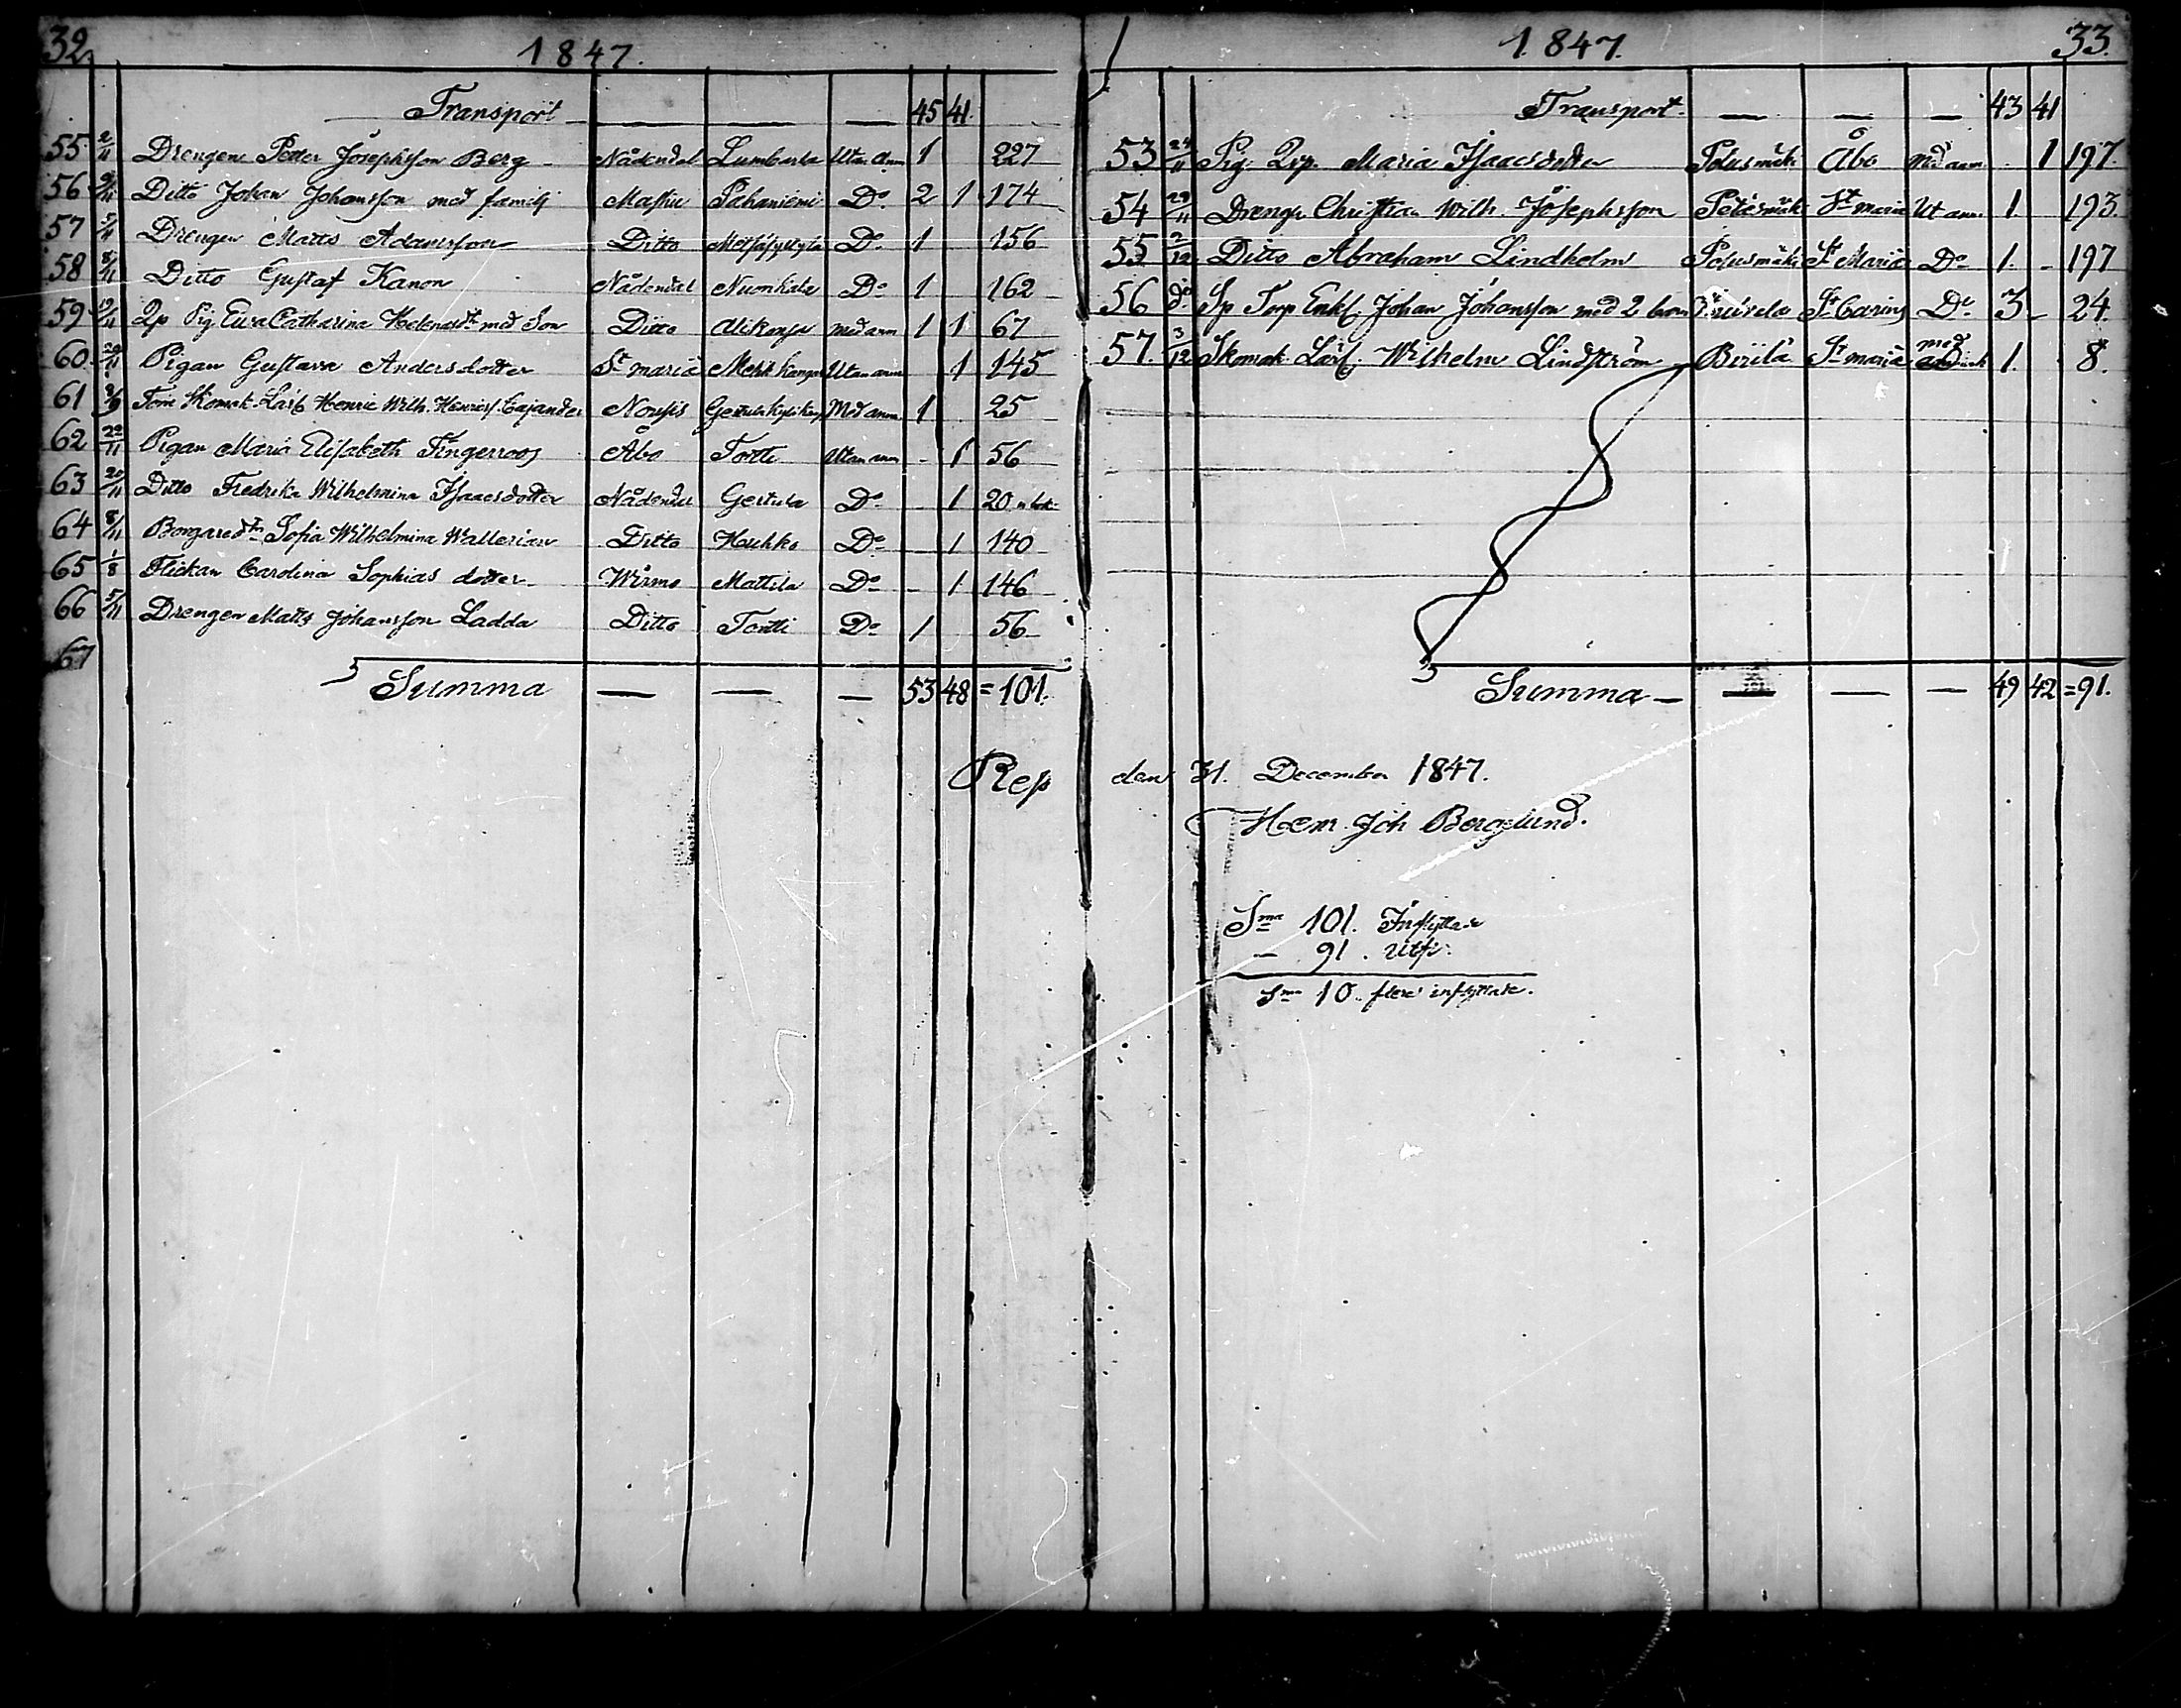 32
1847.
Transport — — — 45 41.
55 2/11 Drengen Petter Josephsson Berg Nådendal Lumberla Utan Anm 1 227
56 Ditto Johan Johansson med familj Masku Pahaniemi Do 2 1 174
57 5/11 Drengen Matts Adamsson Ditto Do 1 156
58 8/11 Ditto Gustaf Kanon Nådendal Do 1 162
59 Pig Eva Catharina Helenasdr med Son Ditto Alikansa med anm 1 1 67
60 20/11 Pigan Gustava Andersdotter St maria Utan anm 1 145
61 Skomak. Lärl Henric Wilh. Henricss. Cajander Nousis Med anm 1 25
62 22/11 Pigan Maria Elisabeth Fingerroos Åbo Tortti Utan anm - 1 56
63 20/11 Ditto Fredrika Wilhelmina Isaacsdotter Nådendal Gertula Do 1 20
64 8/11 Sofia Wilhelmina Wallerian Ditto Huhko Do 1 140
65 1/8 Flickan Carolina Sophias dotter Wirmo Mattila Do - 1 146
66 5/11 Drengen Matts Johansson Ladda Ditto Tortti Do 1 56
67
Summa — — — 53 48 = 101.
33.
1847.
Transport — — — 43 41
53 24/11 Pig. Maria Isaacsdotter Polusmäki Åbo med anm 1 197.
54 29/11 Dreng. Christian Wilh. Josephsson St maria Ut anm 1. 193.
55 2/12 Ditto Abraham Lindholm Polusmäki St Maria Do 1. - 197
56 do Sp Torp Enkl. Johan Johansson med 2 barn St Carins Do 3 - 24.
57. 3/12 Skomak Lärl. Wilhelm Lindström Beiila St maria med 1. 8.
Summa — — — 49 42 = 91.
Resp den 31. December 1847.
Henr. Joh Berglund.
Sma 101. Inflyttade
— 91. Utfl.
Sma 10. flere inflyttade.